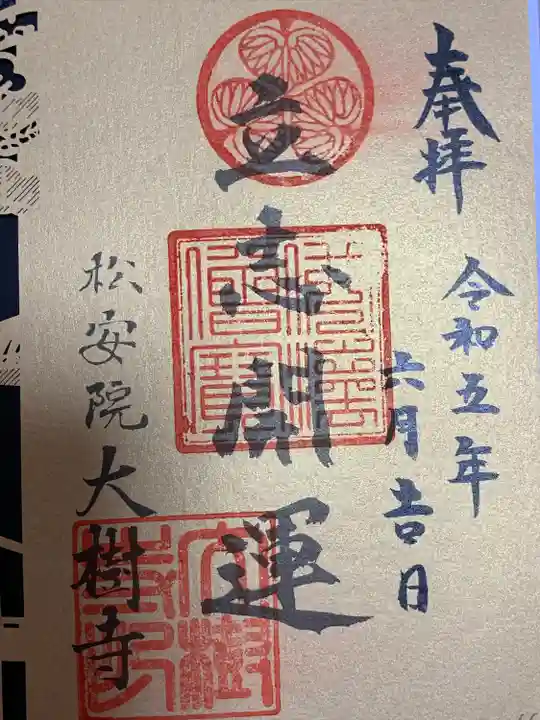 奉拝
令和五年
六月吉日
立志開運
松安院大樹寺